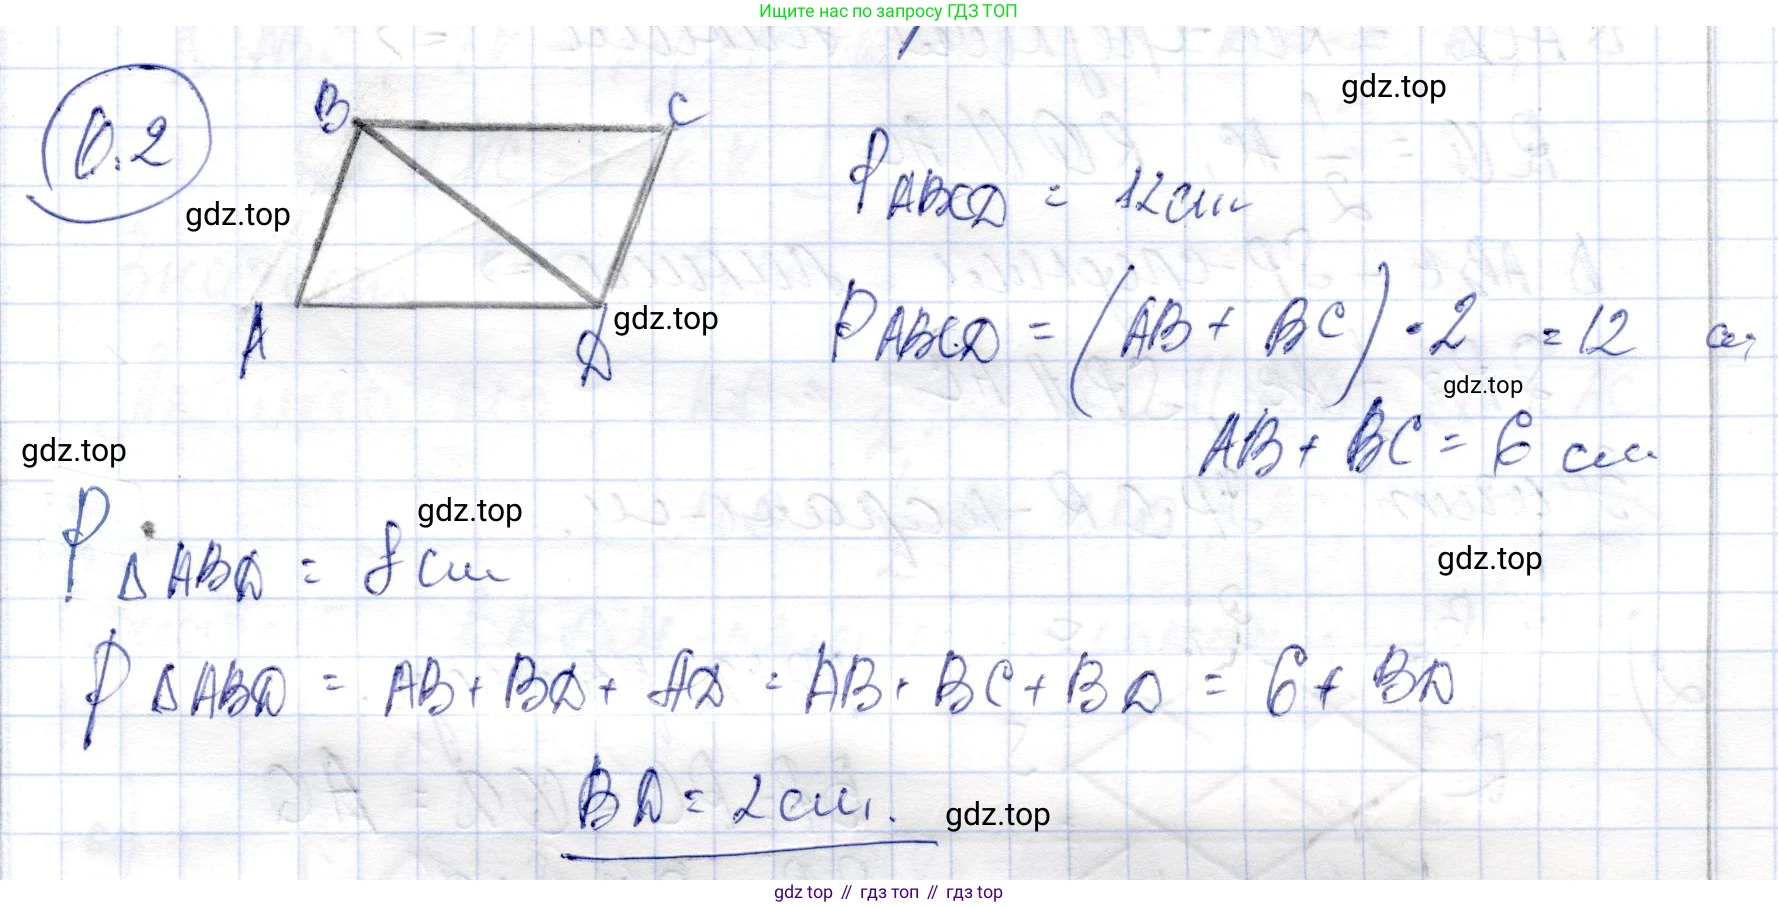 Ищите нас по запросу ГДЗ ТОП
0.2
B C
A D
gdz.top
gdz.top
gdz.top
P ABCD = 12 см
P ABCD = (AB + BC) · 2 = 12 см
gdz.top
AB + BC = 6 см
gdz.top
gdz.top
P Δ ABD = 8 см
gdz.top
P Δ ABD = AB + BD + AD = AB + BC + BD = 6 + BD
BD = 2 см.
gdz.top
gdz top // гдз топ // гдз top